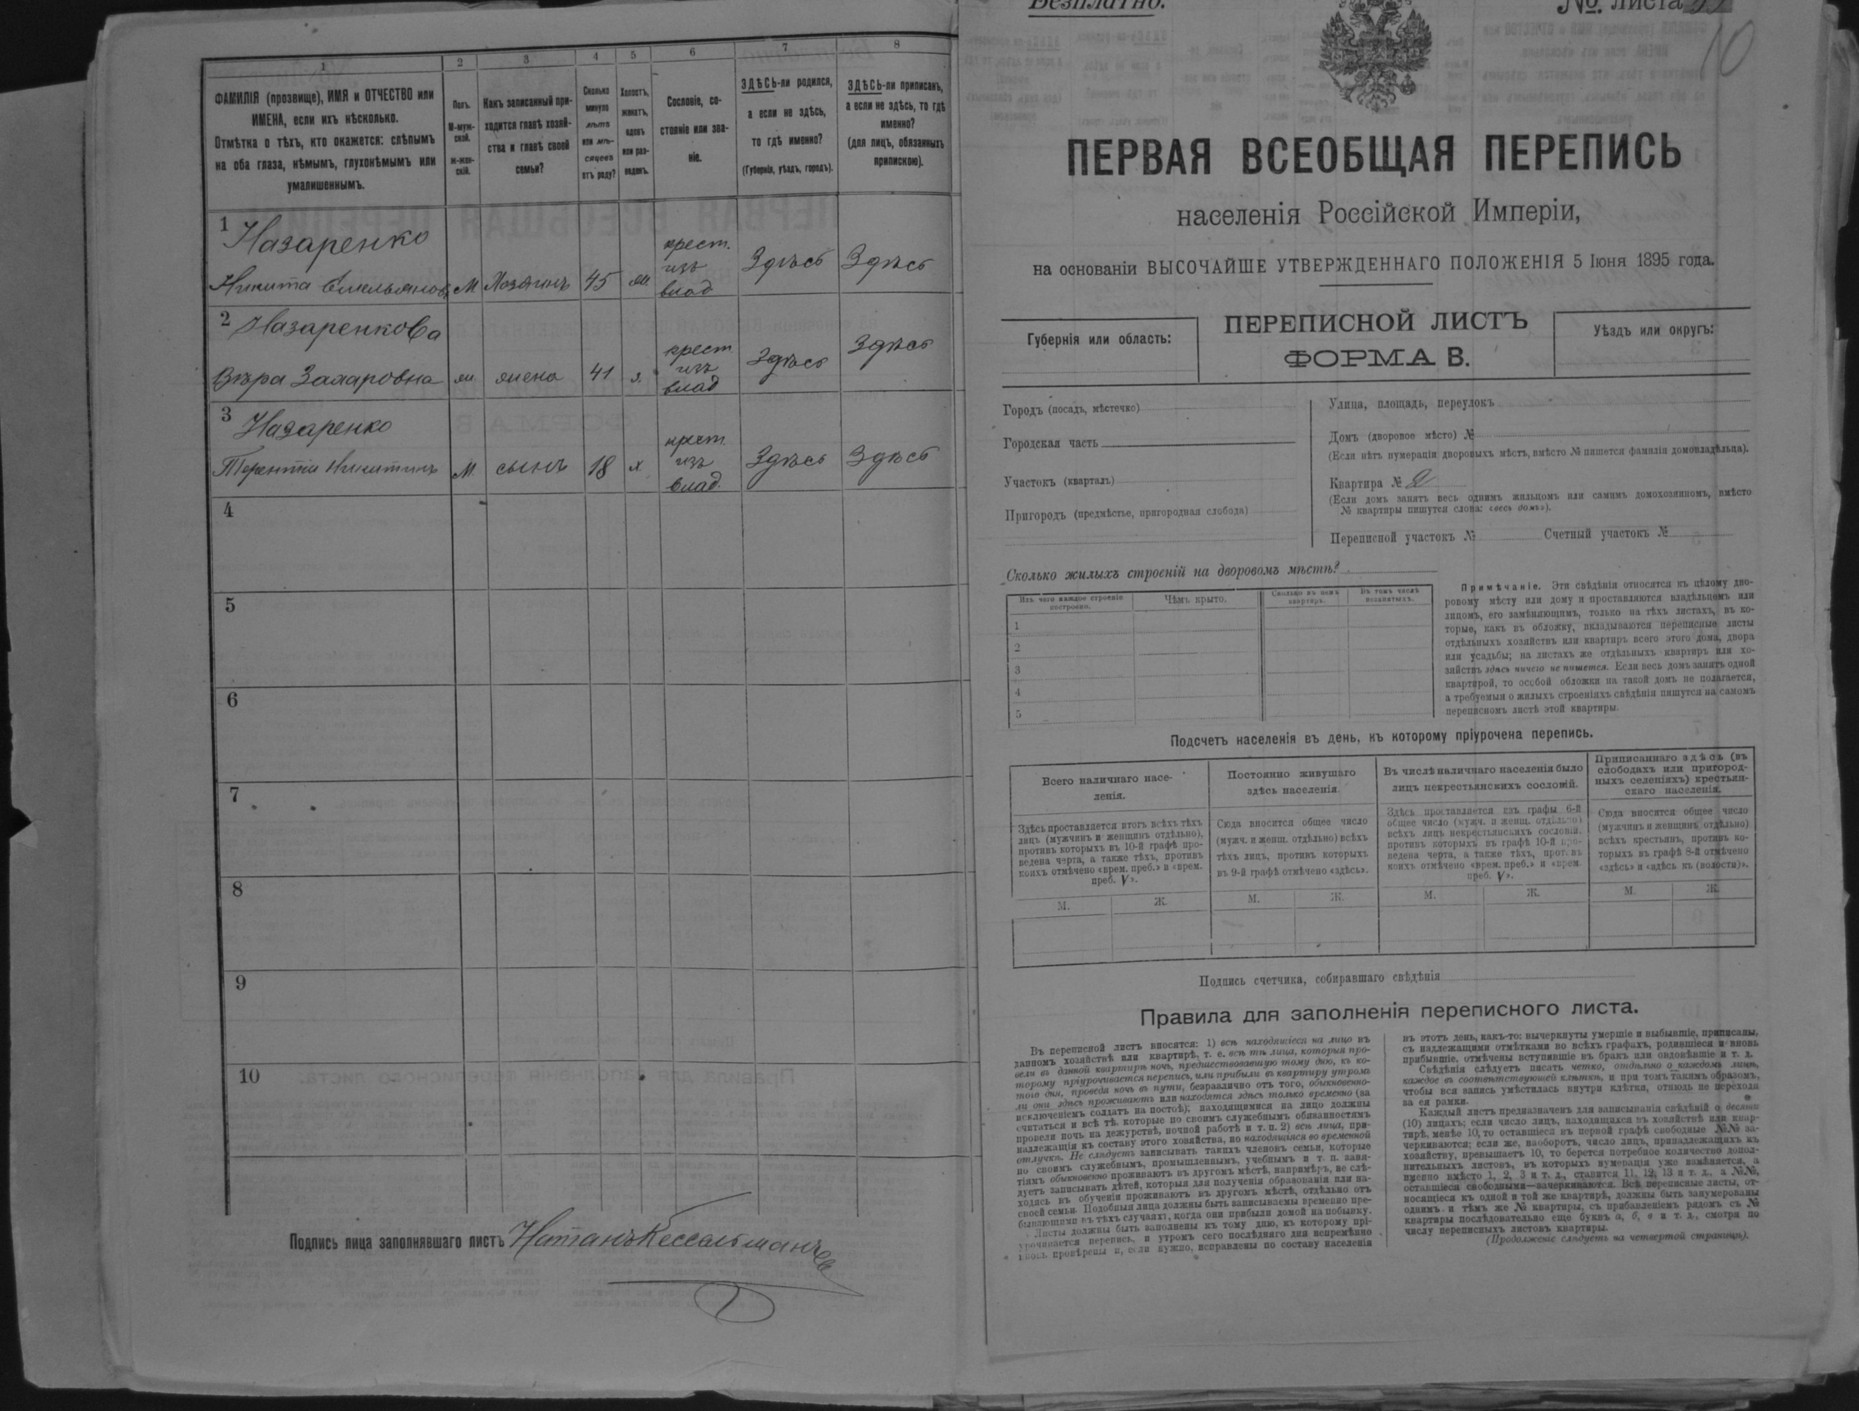 1 2 3 4 5 6 7 8
ФАМИЛІЯ (прозвище), ИМЯ и ОТЧЕСТВО или
ИМЕНА, если ихъ нѣсколько.
Отмѣтка о тѣхъ, кто окажется: слѣпымъ
на оба глаза, нѣмымъ, глухонѣмымъ или
умалишеннымъ.
Полъ.
М-муж-
ской.
Ж-жен-
скій.
Какъ записанный при-
ходится главѣ хозяй-
ства и главѣ своей
семьи?
Сколько
минуло
лѣтъ
или мѣ-
сяцевъ
отъ роду?
Холостъ,
женатъ,
вдовъ
или раз-
веденъ.
Сословіе, со-
стояніе или зва-
ніе.
ЗДѢСЬ-ли родился,
а если не здѣсь,
то гдѣ именно?
(Губернія, уѣздъ, городъ).
ЗДѢСЬ-ли приписанъ,
а если не здѣсь, то гдѣ
именно?
(для лицъ, обязанныхъ
припискою).
1 Назаренко
Никита Емельянов М Хозяинъ 45 ж. крест. изъ влад Здѣсь Здѣсь
2 Назаренкова
Вѣра Захаровна ж. жена 41 з. крест изъ влад Здѣсь Здѣсь
3 Назаренко
Терентій Никитинъ М сынъ 18 х крест. изъ влад. Здѣсь Здѣсь
4
5
6
7
8
9
10
Подпись лица заполнявшаго листъ Натанъ Кессельманъ
Безплатно.
№. листа
10
ПЕРВАЯ ВСЕОБЩАЯ ПЕРЕПИСЬ
населенія Россійской Имперіи,
на основаніи ВЫСОЧАЙШЕ УТВЕРЖДЕННАГО ПОЛОЖЕНІЯ 5 Іюня 1895 года.
Губернія или область:
ПЕРЕПИСНОЙ ЛИСТЪ
ФОРМА В.
Уѣздъ или округъ:
Городъ (посадъ, мѣстечко)
Городская часть
Участокъ (кварталъ)
Пригородъ (предмѣстье, пригородная слобода)
Улица, площадь, переулокъ
Домъ (дворовое мѣсто) №
(Если нѣтъ нумераціи дворовыхъ мѣстъ, вмѣсто № пишется фамилія домовладѣльца).
Квартира № 2
(Если домъ занятъ весь однимъ жильцомъ или самимъ домохозяиномъ, вмѣсто
№ квартиры пишутся слова: «весь домъ»).
Переписной участокъ № Счетный участокъ №
Сколько жилыхъ строеній на дворовомъ мѣстѣ?
Изъ чего каждое строеніе
построено.
Чѣмъ крыто.
Сколько въ немъ
квартиръ.
Въ томъ числѣ
незанятыхъ.
1
2
3
4
5
Примѣчаніе. Эти свѣдѣнія относятся къ цѣлому дво-
ровому мѣсту или дому и проставляются владѣльцемъ или
лицомъ, его замѣняющимъ, только на тѣхъ листахъ, въ ко-
торые, какъ въ обложку, вкладываются переписные листы
отдѣльныхъ хозяйствъ или квартиръ всего этого дома, двора
или усадьбы; на листахъ же отдѣльныхъ квартиръ или хо-
зяйствъ здѣсь ничего не пишется. Если весь домъ занятъ одной
квартирой, то особой обложки на такой домъ не полагается,
а требуемыя о жилыхъ строеніяхъ свѣдѣнія пишутся на самомъ
переписномъ листѣ этой квартиры.
Подсчетъ населенія въ день, къ которому пріурочена перепись.
Всего наличнаго насе-
ленія.
Здѣсь проставляется итогъ всѣхъ тѣхъ
лицъ (мужчинъ и женщинъ отдѣльно),
противъ которыхъ въ 10-й графѣ про-
ведена черта, а также тѣхъ, противъ
коихъ отмѣчено «врем. преб.» и «врем.
преб. V».
Постоянно живущаго
здѣсь населенія
Сюда вносится общее число
(мужч. и женщ. отдѣльно) всѣхъ
тѣхъ лицъ, противъ которыхъ
въ 9-й графѣ отмѣчено «здѣсь».
Въ числѣ наличнаго населенія было
лицъ некрестьянскихъ сословій.
Здѣсь проставляется изъ графы 6-й
общее число (мужч. и женщ. отдѣльно)
всѣхъ лицъ некрестьянскихъ сословій,
противъ которыхъ въ графѣ 10-й про-
ведена черта, а также тѣхъ, прот. въ
коихъ отмѣчено «врем. преб.» и «врем.
преб. V».
Приписаннаго здѣсь (въ
слободахъ или пригород-
ныхъ селеніяхъ) крестьян-
скаго населенія.
Сюда вносится общее число
(мужчинъ и женщинъ отдѣльно)
всѣхъ крестьянъ, противъ ко-
торыхъ въ графѣ 8-й отмѣчено
«здѣсь» и «здѣсь къ (волости)».
М. Ж. М. Ж. М. Ж. М. Ж.
Подпись счетчика, собиравшаго свѣдѣнія
Правила для заполненія переписного листа.
Въ переписной листъ вносятся: 1) всѣ находящіеся на лицо въ
данномъ хозяйствѣ или квартирѣ, т. е. всѣ тѣ лица, которыя про-
вели въ данной квартирѣ ночь, предшествовавшую тому дню, къ ко-
торому пріурочивается перепись, или прибыли въ квартиру утромъ
того дня, проведя ночь въ пути, безразлично отъ того, обыкновенно-
ли они здѣсь проживаютъ или находятся здѣсь только временно (за
исключеніемъ солдатъ на постоѣ); находящимися на лицо должны
считаться и всѣ тѣ, которые по своимъ служебнымъ обязанностямъ
провели ночь на дежурствѣ, ночной работѣ и т. п. 2) всѣ лица, при-
надлежащія къ составу этого хозяйства, но находящіяся во временной
отлучкѣ. Не слѣдуетъ записывать такихъ членовъ семьи, которые
по своимъ служебнымъ, промышленнымъ, учебнымъ и т. п. заня-
тіямъ обыкновенно проживаютъ въ другомъ мѣстѣ, напримѣръ, не слѣ-
дуетъ записывать дѣтей, которыя для полученія образованія или на-
ходясь въ обученіи проживаютъ въ другомъ мѣстѣ, отдѣльно отъ
своей семьи. Подобныя лица должны быть записываемы временно пре-
бывающими въ тѣхъ случаяхъ, когда они прибыли домой на побывку.
Листы должны быть заполнены къ тому дню, къ которому прі-
урочивается перепись, и утромъ сего послѣдняго дня непремѣнно
вновь провѣрены и, если нужно, исправлены по составу населенія
въ этотъ день, какъ-то: вычеркнуты умершіе и выбывшіе, приписаны,
съ надлежащими отмѣтками во всѣхъ графахъ, родившіеся и вновь
прибывшіе, отмѣчены вступившіе въ бракъ или овдовѣвшіе и т. д.
Свѣдѣнія слѣдуетъ писать четко, отдѣльно о каждомъ лицѣ,
каждое въ соотвѣтствующей клѣткѣ, и при томъ такимъ образомъ,
чтобы вся запись умѣстилась внутри клѣтки, отнюдь не переходя
за ея рамки.
Каждый листъ предназначенъ для записыванія свѣдѣній о десяти
(10) лицахъ; если число лицъ, находящихся въ хозяйствѣ или квар-
тирѣ, менѣе 10, то оставшіеся въ первой графѣ свободные №№ за-
черкиваются; если же, наоборотъ, число лицъ, принадлежащихъ къ
хозяйству, превышаетъ 10, то берется потребное количество допол-
нительныхъ листовъ, въ которыхъ нумерація уже измѣняется, а
именно вмѣсто 1, 2, 3 и т. д., ставится 11, 12, 13 и т. д., а №№,
оставшіеся свободными—зачеркиваются. Всѣ переписные листы, от-
носящіеся къ одной и той же квартирѣ, должны быть занумерованы
однимъ и тѣмъ же № квартиры, съ прибавленіемъ рядомъ съ №
квартиры послѣдовательно еще буквъ а, б, в и т. д., смотря по
числу переписныхъ листовъ квартиры.
(Продолженіе слѣдуетъ на четвертой страницѣ).